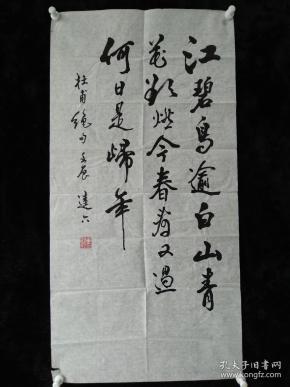 江碧鸟逾白山青
花欲燃今春看又過
何日是歸年
杜甫絶句 壬辰 達六
孔夫子旧书网